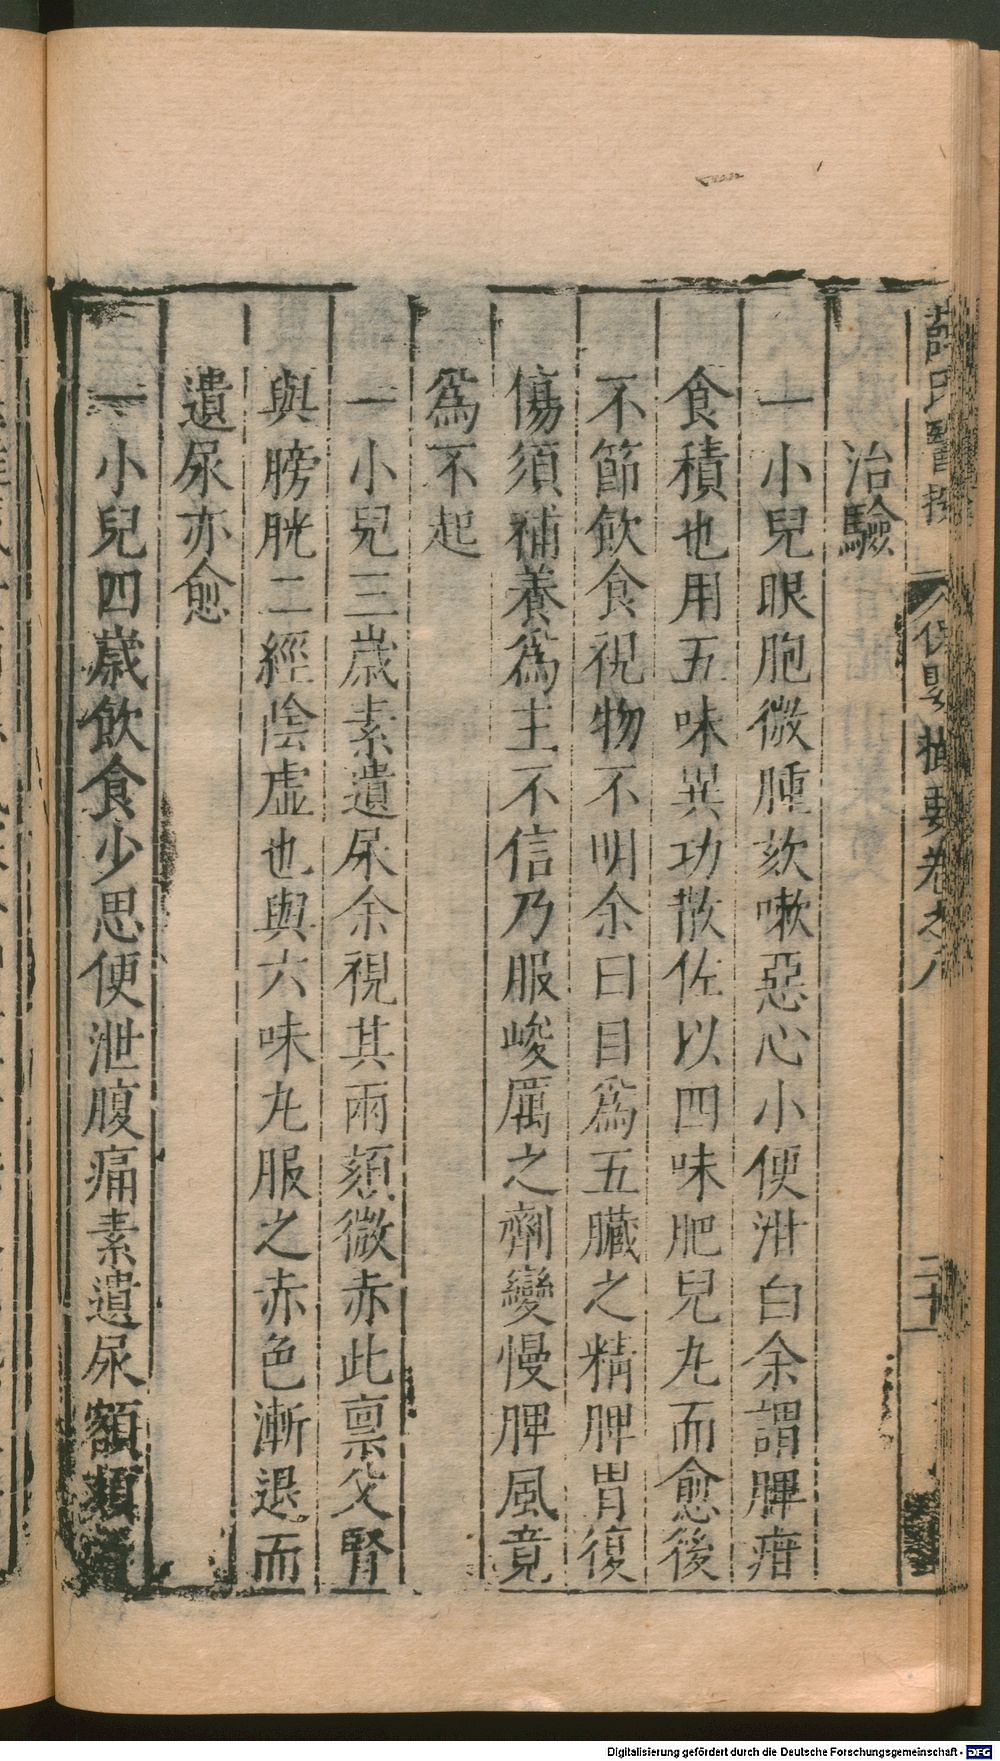 薛氏醫按 保嬰撮要卷之八 二十
治驗
一小兒眼胞微腫欬嗽惡心小便泔白余謂脾疳
食積也用五味異功散佐以四味肥兒丸而愈後
不節飲食視物不明余曰目爲五臟之精脾胃復
傷須補養爲主不信乃服峻厲之劑變慢脾風竟
爲不起
一小兒三歲素遺尿余視其兩頦微赤此禀父腎
與膀胱二經陰虛也與六味丸服之赤色漸退而
遺尿亦愈
一小兒四歲飲食少思便泄腹痛素遺尿額頦
Digitalisierung gefördert durch die Deutsche Forschungsgemeinschaft - DFG